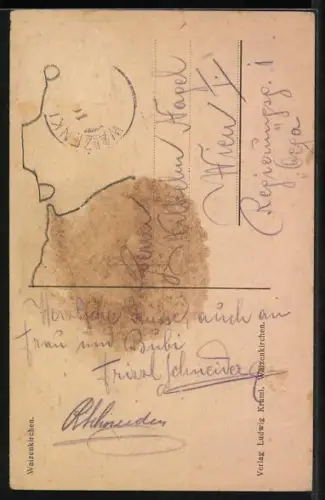 WAIZENKI
11
Herrn
Wilhelm Nagel
Wien I.
Regierungsg. 1
Herzliche Grüsse, auch an
Frau und Bubi
Fritzl Schneider
RSchneider
Waizenkirchen.
Verlag Ludwig Kraml, Waizenkirchen.